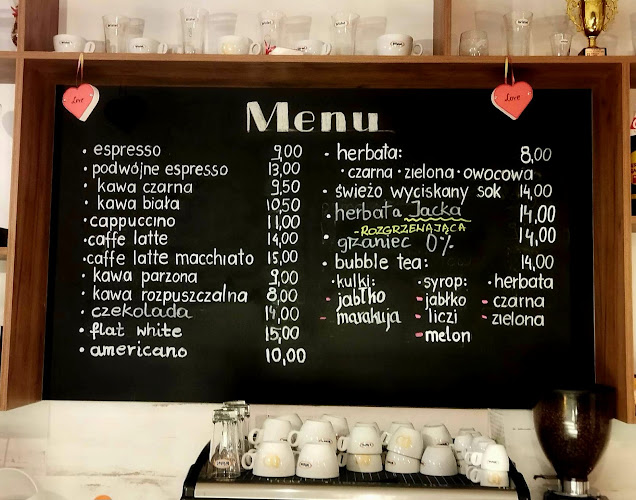 Love
Love
Menu
• espresso 9,00
• podwójne espresso 13,00
• kawa czarna 9,50
• kawa biała 10,50
• cappuccino 11,00
• caffe latte 14,00
• caffe latte macchiato 15,00
• kawa parzona 9,00
• kawa rozpuszczalna 8,00
• czekolada 14,00
• flat white 15,00
• americano 10,00
• herbata: 8,00
• czarna • zielona • owocowa
• świeżo wyciskany sok 14,00
• herbata Jacka 14,00
- ROZGRZEWAJĄCA
• grzaniec 0% 14,00
• bubble tea: 14,00
• kulki: • syrop: • herbata
- jabłko - jabłko - czarna
- marakuja - liczi - zielona
- melon